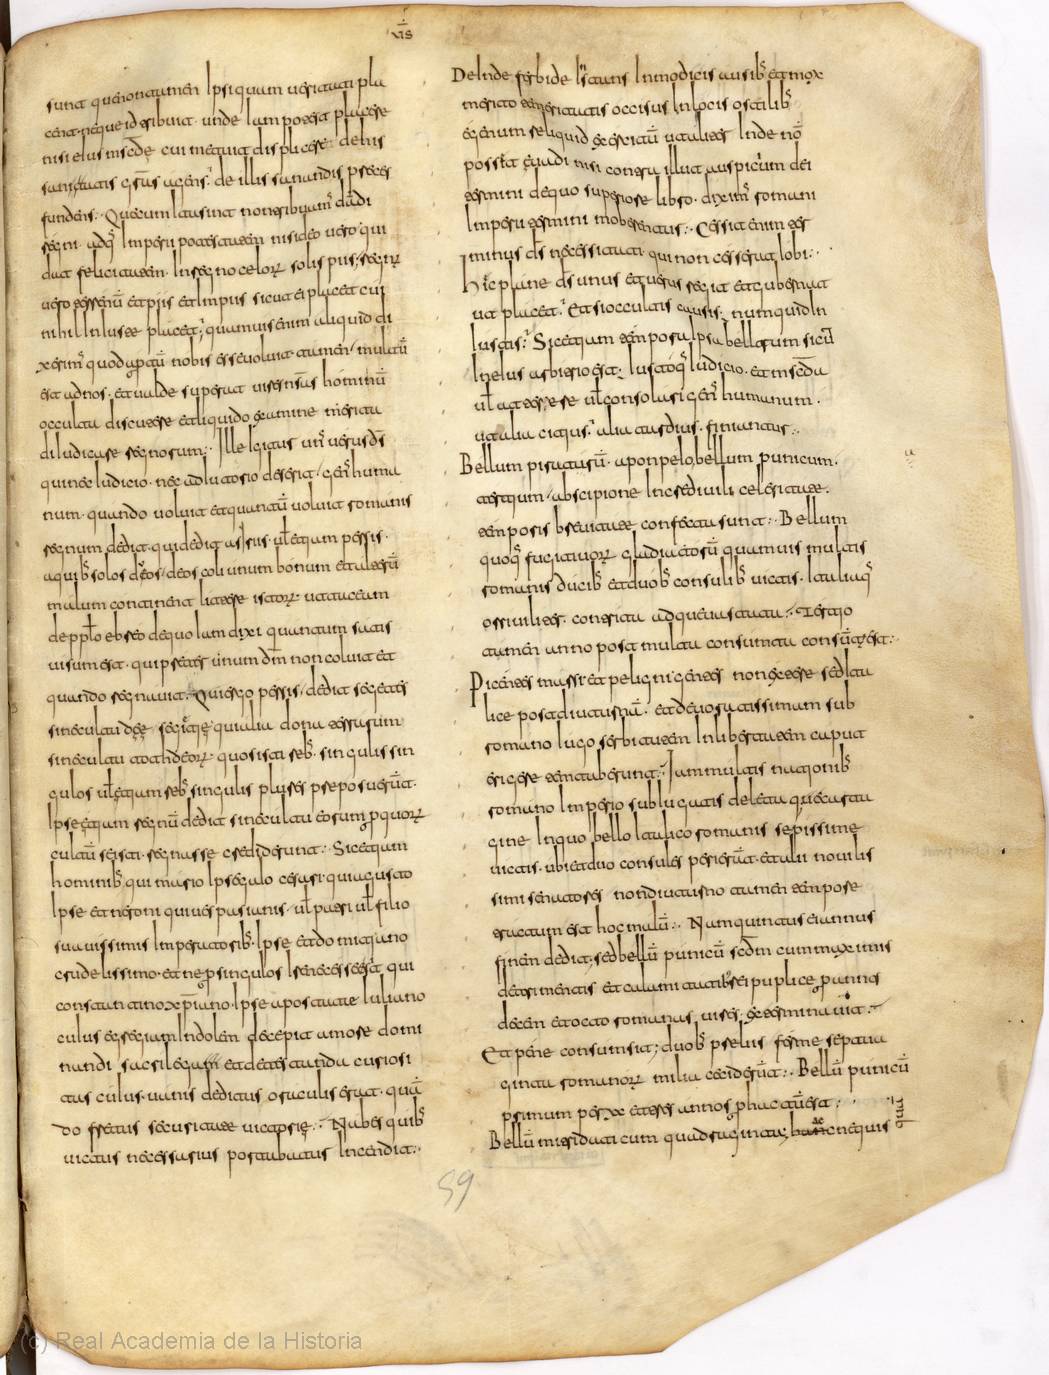 VIS
sunt queriontamen ipsi quam ueritati pla
cent neque id sibiuit unde iam poterat placere
nisi eius misc̄de cui mequit displicere de his
sanitatis
funderis Querum
regni adq̄ inperii potestatem nisi deo uero qui
dat felicitatem in regno celor solis piis regn
uero terrenū et piis et inpiis sicut ei placet cui
nihil iniuste placet quamuis enim aliquid di
xerim quod apertū nobis esse uoluit tamen multū
est ad nos et ualde superat uires nr̄as hominū
occulta discutere et liquido examine merita
diiudicare regnorum Ille igitur un uerus ds̄
qui nec iudicio nec adiutorio deserit gen huma
num quando uoluit et quantū uoluit romanis
regnum dedit qui dedit assiris ul etiam persis
a quib solos deos coli unum bonum et alterū
malum continent litere istor ut taceam
de pplo ebreo de quo iam dixi quantum satis
uisum est qui preter unum dm̄ non coluit et
quando regnauit Qui ergo persis dedit segetes
sine cultu dee segetie qui alia dona terrarum
sine cultu tot deor quos isti reb singulis sin
gulos ul etiam reb singulis plures preposuerūt
Ipse etiam regnū dedit sine cultu eorum p quor
cultū se isti regnasse crediderunt Sic etiam
hominib qui mario ipse gaio cesari qui agusto
ipse et neroni qui uespasianis ul patri ul filio
suauissimis inperatorib ipse et domitiano
crudelissimo et ne p singulos ire necesse sit qui
constantino xp̄iano ipse apostate iuliano
cuius egregiam indolem decepit amore domi
nandi sacrilega et detestanda curiosi
tas cuius uanis deditus oraculis erat quan
do fretus securitate uictorie Nabes quib
uictus necessarius portabatur incendit
Deinde feruide instans inmodicis ausib et mox
merito temeritatis occisus in locis ostilib
egenum reliquid exercitū ut aliter inde nō
posset euadi nisi contra illut auspicium dei
termini de quo superiore libro diximus romani
inperii termini mobeantur Cessit enim ter
minus ds̄ necessitati qui non cesserat iobi
Hec plane ds̄ unus et uerus regit et gubernat
ut placet Et si occultis causis numquid in
iustis Sic etiam tempora ipsa bellorum sicut
in eius arbitrio est iustoq̄ iudicio et misc̄da
ul atterere ul consolari gen humanum
ut alia citius alia tardius finiantur
Bellum piratarū a ponpeio bellum punicum
tertium ab scipione incredibili celeritate
temporis breuitate confecta sunt Bellum
quoq fugitiuor gladiatorū quamuis multis
romanis ducib et duob consulib uictis italiaq
orriuiliter contrita adque uastata Tertio
tamen anno post multa consumta consūtū est
Picentes marsi et peligni gentes non extere sed ita
lice post diuturnā et deuotissimam sub
romano iugo serbitutem in libertatem caput
erigere temtaberunt Iam multis nationib
romano inperio subiugatis deleta que carta
gine In quo bello italico romanis sepissime
uictis ubi et duo consules perierūt et alii nouilis
simi senatores non diuturno tamen tempore
tractum est hoc malū Nam quintus ei annus
finem dedit sed bellū punicū sc̄dm cum maximis
detrimentis et calamitatib rei puplice p annos
decem et octo romanas uires exterminauit
Et pene consumsit duob preliis ferme septua
ginta romanor milia ceciderūt Bellū punicū
primum per xx et tres annos peractū est
Bellū mitridaticum quadraginta hac nequis
59
(c) Real Academia de la Historia